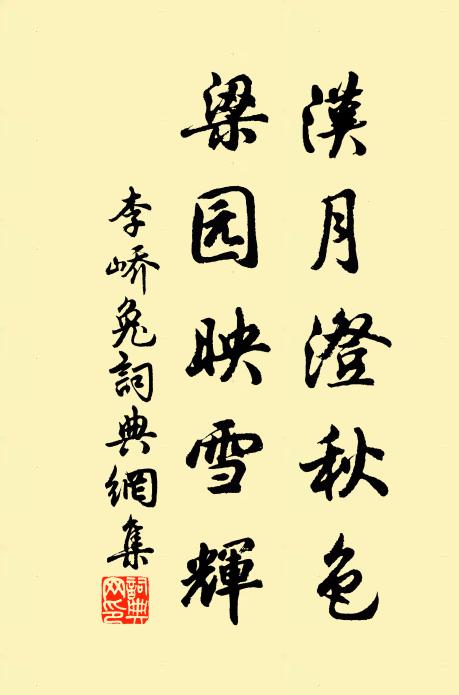 漢月澄秋色
梁园映雪輝
李嶠兔詞典網集
詞典网印